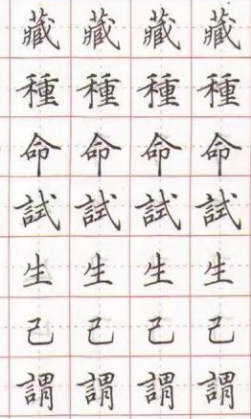 藏藏藏藏
種種種種
命命命命
試試試試
生生生生
己己己己
謂謂謂謂